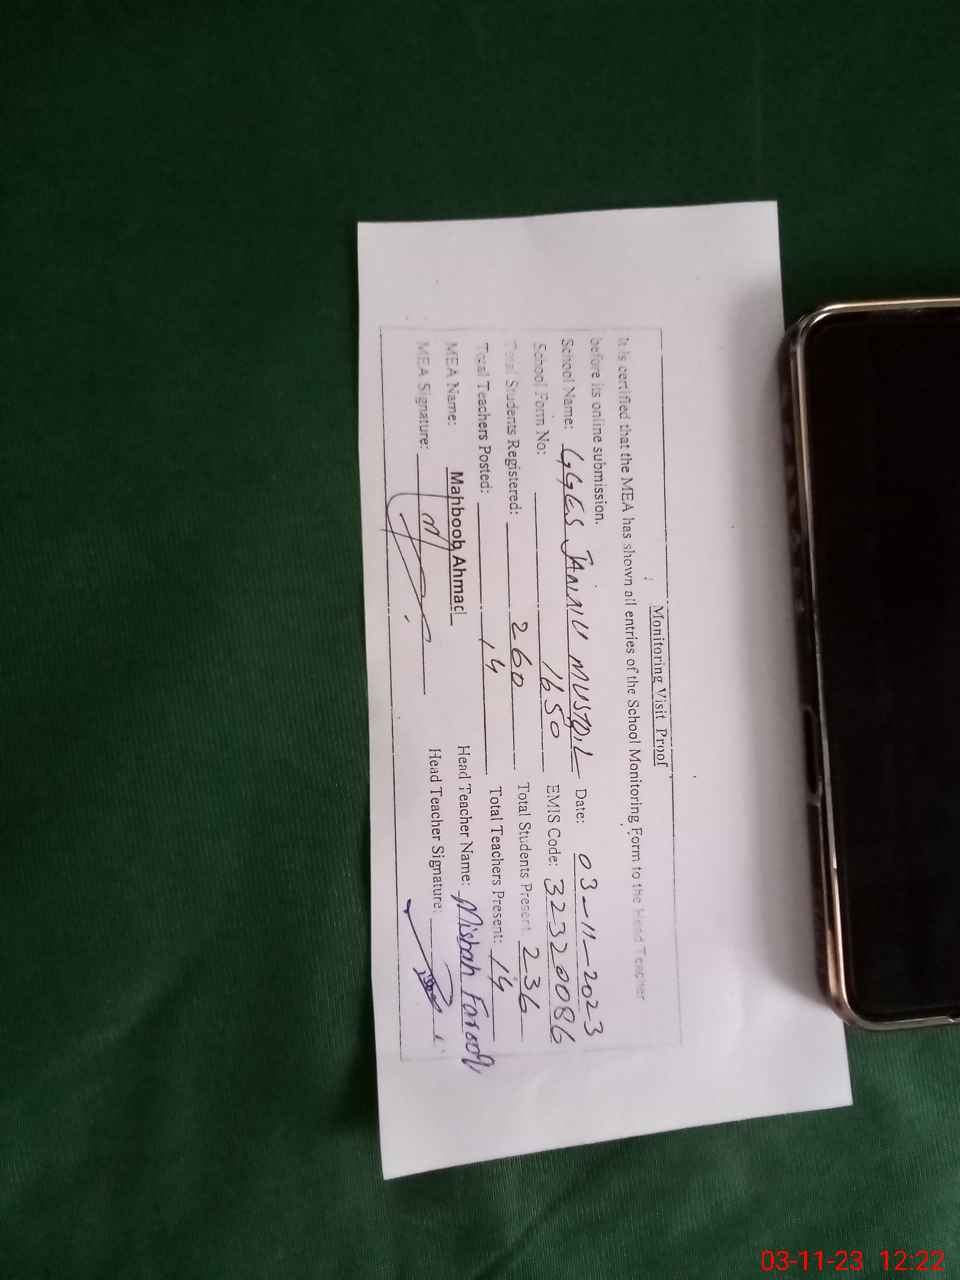 Monitoring Visit Proof
It is certified that the MEA has shown all entries of the School Monitoring Form to the Head Teacher
before its online submission.
School Name: GGES JANINU MUSTQIL Date: 03-11-2023
School Form No: 1650 EMIS Code: 32320086
Total Students Registered: 260 Total Students Present: 236
Total Teachers Posted: 14 Total Teachers Present: 14
MEA Name: Mahboob Ahmad Head Teacher Name: Misbah Farooq
MEA Signature: Head Teacher Signature:
03-11-23 12:22